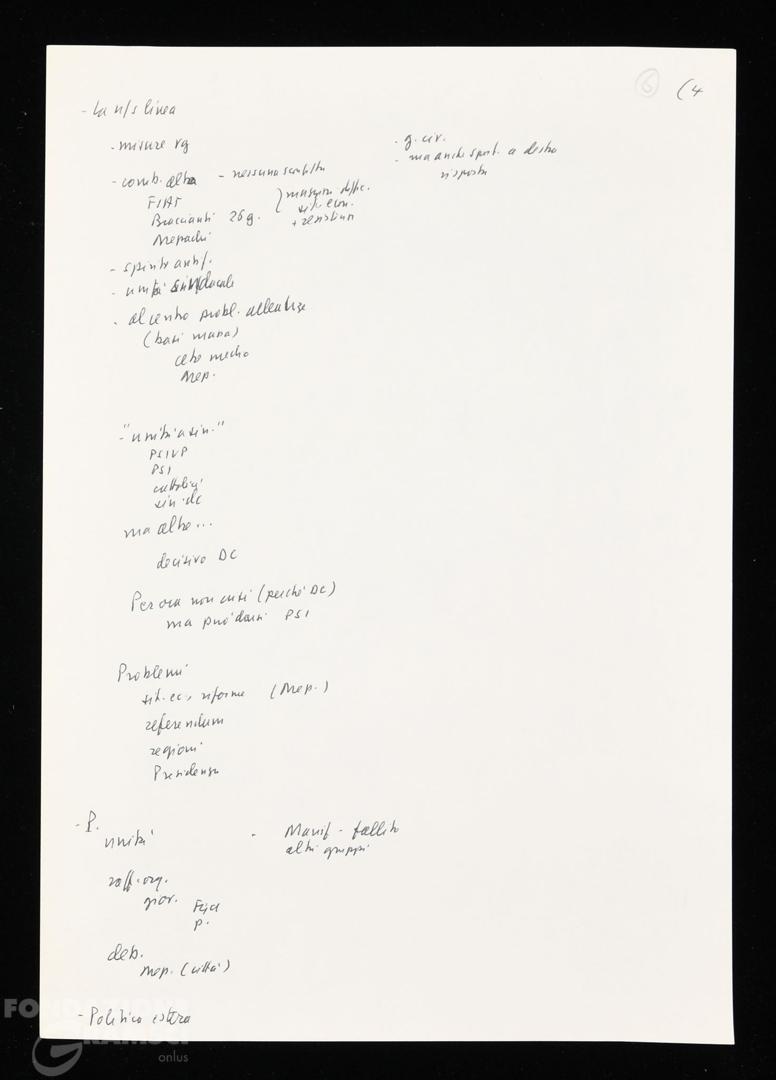 6 (4
- La n/s linea
- misure rg
- g. civ.
- ma anche spost. a destra
risposta
- comb. alta - nessuna sconfitta
FIAT
Braccianti 26 g.
Mezzadri
maggiori diffic.
sit. econ.
+ resistenze
- spinta antif.
- unità sindacale
- al centro probl. alleanze
(basi massa)
ceto medio
Mezz.
- "unità a sin."
PSIUP
PSI
cattolici
sin. dc
ma altro...
decisivo DC
Per ora non così (perché DC)
ma può darsi PSI
Problemi
sit. ec., riforme (Mezz.)
referendum
regioni
Presidenza
- P.
unità
- Manif - fallito
altri gruppi
raff. org.
giov. FGCI
P.
deb.
Mezz. (città)
- Politica estera
FONDAZIONE
GRAMSCI
onlus